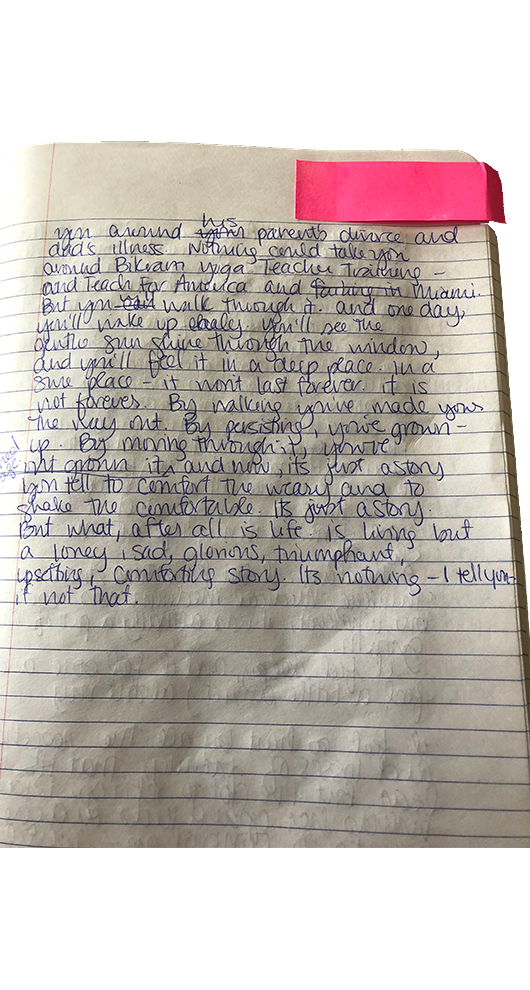 his
you around your parents divorce and
dad's illness. Nothing could take you
around Bikram yoga Teacher Training –
and Teach For America and Miami.
But you walk through it. and one day,
you'll wake up you'll see the
gentle sun shine through the window,
and you'll feel it in a deep place. in a
sure place – it won't last forever. it is
not forever. By walking you've made your
the way out. By persisting, you've grown –
up. By moving through it, you've
out grown it, and now, its just a story
you tell to comfort the weary and to
shake the comfortable. Its just a story.
But what, after all is life. is living but
a loney, sad, glorious, triumphant,
upsetting, comforting story. Its nothing – I tell you –
if not that.